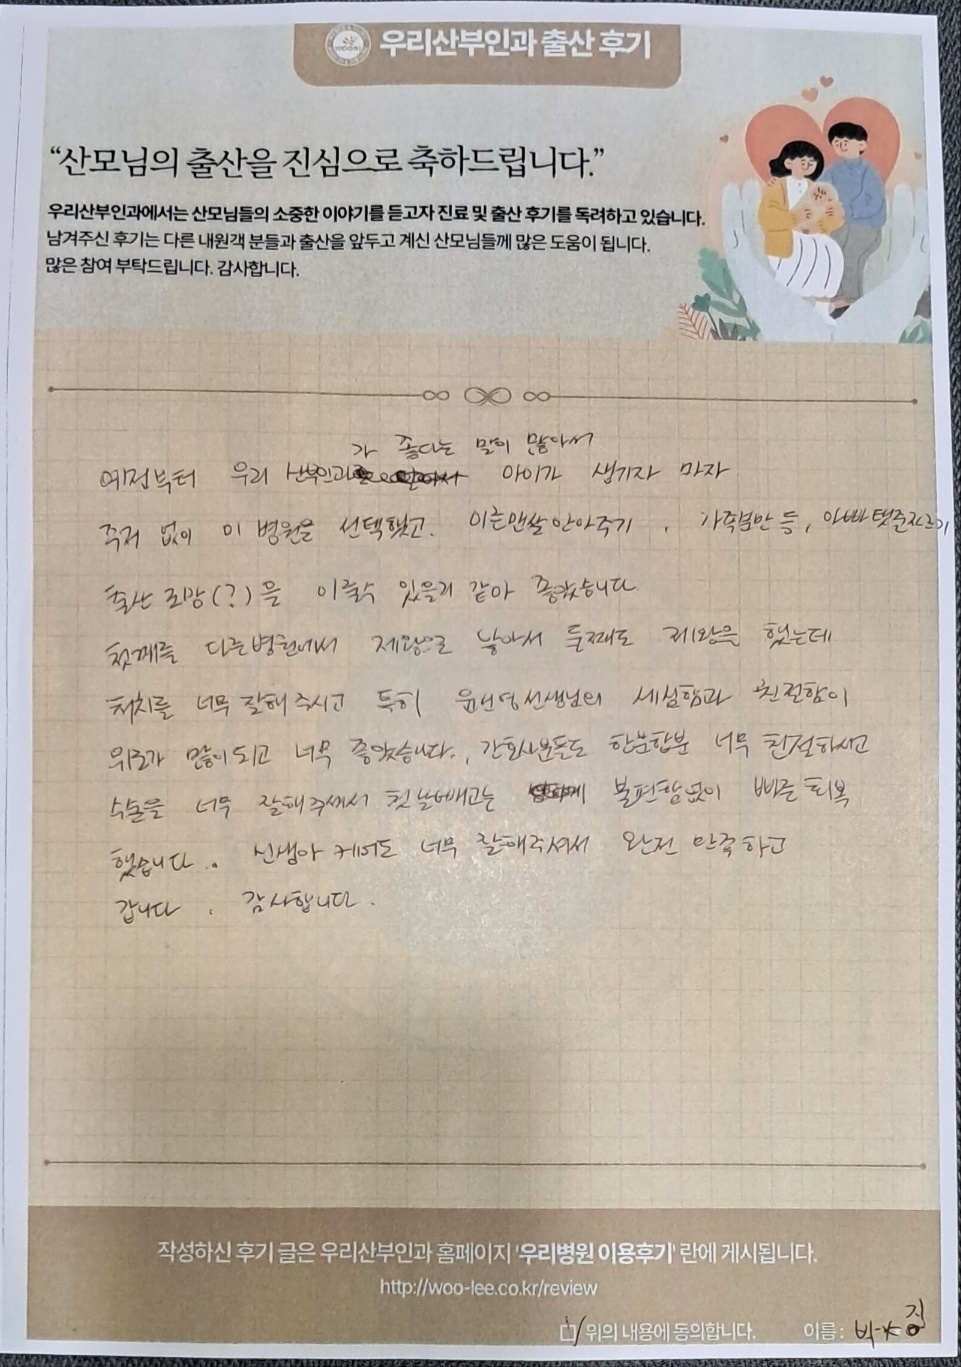 우리산부인과 출산 후기
“산모님의 출산을 진심으로 축하드립니다.”
우리산부인과에서는 산모님들의 소중한 이야기를 듣고자 진료 및 출산 후기를 독려하고 있습니다.
남겨주신 후기는 다른 내원객 분들과 출산을 앞두고 계신 산모님들께 많은 도움이 됩니다.
많은 참여 부탁드립니다. 감사합니다.
가 좋다는 말이 많아서
예전부터 우리 산부인과 아이가 생기자 마자
주저 없이 이 병원을 선택했고. 이른맨살안아주기, 가족분만 등, 아빠탯줄자르기
출산 로망(?)을 이룰수 있을거 같아 좋았습니다
첫째를 다른병원에서 제왕으로 낳아서 둘째도 제왕을 했는데
처치를 너무 잘해주시고 특히 윤선영선생님의 세심함과 친절함이
위로가 많이되고 너무 좋았습니다., 간호사분들도 한분한분 너무 친절하시고
수술을 너무 잘해주셔서 첫날빼고는 불편함없이 빠른회복
했습니다.. 신생아 케어도 너무 잘해주셔서 완전 만족하고
갑니다. 감사합니다.
작성하신 후기 글은 우리산부인과 홈페이지 '우리병원 이용후기' 란에 게시됩니다.
http://woo-lee.co.kr/review
위의 내용에 동의합니다. 이름 : 박 정